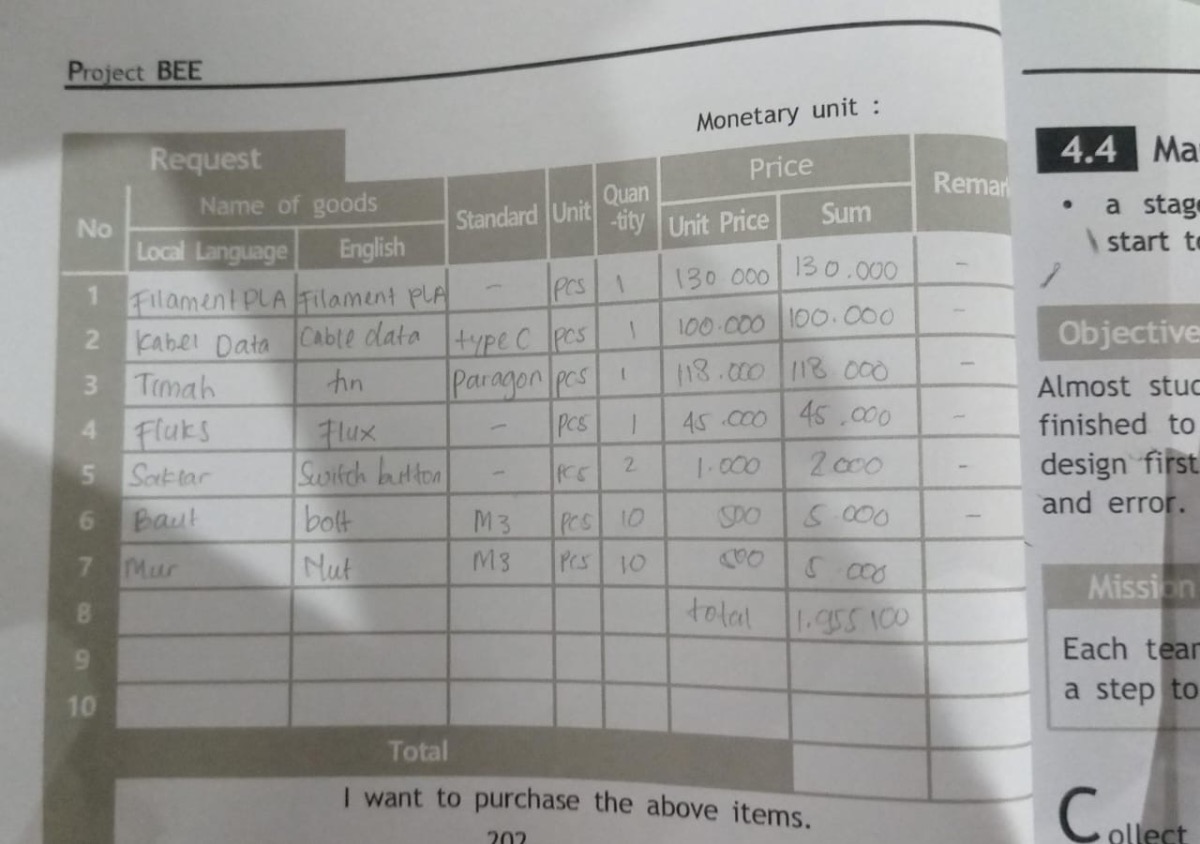 Project BEE
Monetary unit :
Request
No Name of goods Standard Unit Quan-tity Price Remar
Local Language English Unit Price Sum
1 Filament PLA Filament PLA - pcs 1 130 000 130.000 -
2 Kabel Data Cable data type C pcs 1 100.000 100.000 -
3 Timah tin Paragon pcs 1 118.000 118 000 -
4 Fluks Flux - pcs 1 45.000 45.000 -
5 Saktar Switch button - pcs 2 1.000 2000 -
6 Baut bolt M3 pcs 10 500 5.000 -
7 Mur Nut M3 pcs 10 500 5 000
8 total 1.955 100
9
10
Total
I want to purchase the above items.
202
4.4 Ma
• a stage
start to
Objective
Almost stud
finished to
design first
and error.
Mission
Each team
a step to
Collect